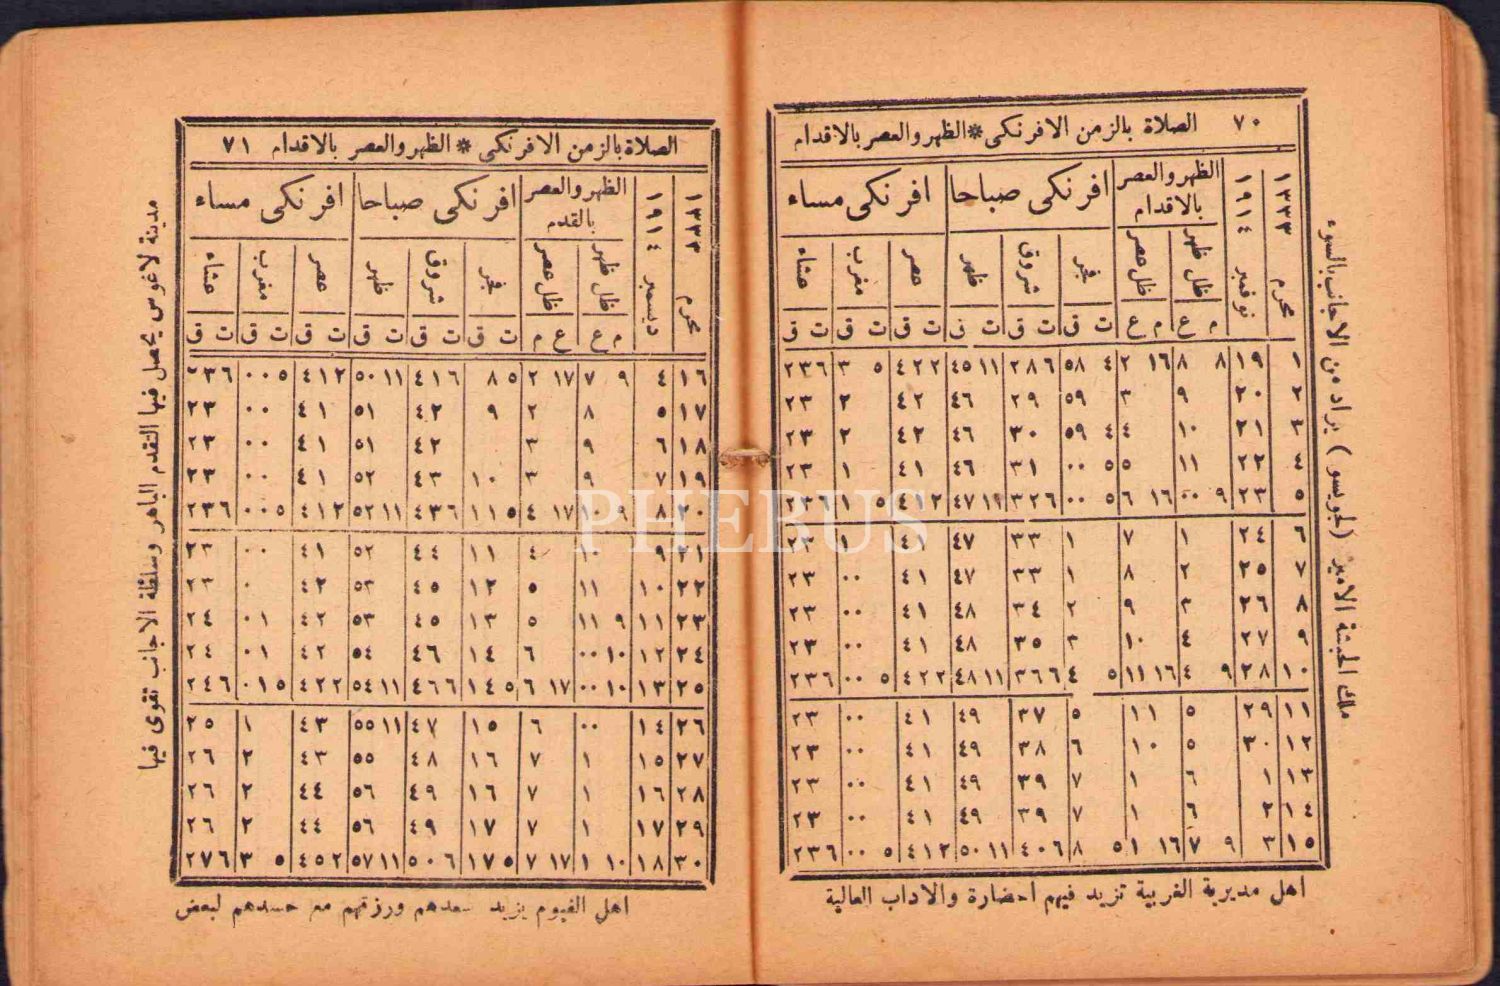 ٧٠ الصلاة بالزمن الافرنكى * الظهر والعصر بالاقدام
١٣٣٣ محرم | ١٩١٤ نوفمبر | الظهر والعصر بالاقدام | افرنكى صباحا | افرنكى مساء
ظل ظهر | ظل عصر | فجر | شروق | ظهر | عصر | مغرب | عشاء
م ع | م ع | ت ق | ت ق | ت ق | ت ق | ت ق | ت ق
١ | ١٩ | ٨ ٨ | ١٦ ٢ | ٤ ٥٨ | ٦ ٢٨ | ١١ ٤٥ | ٢ ٤٢ | ٥ ٣ | ٦ ٢٣
٢ | ٢٠ | ٩ | ٣ | ٥٩ | ٢٩ | ٤٦ | ٤٢ | ٢ | ٢٣
٣ | ٢١ | ١٠ | ٤ | ٤ ٥٩ | ٣٠ | ٤٦ | ٤٢ | ٢ | ٢٣
٤ | ٢٢ | ١١ | ٥ | ٥ ٠٠ | ٣١ | ٤٦ | ٤١ | ١ | ٢٣
٥ | ٢٣ | ٩ ٠٠ | ١٦ ٦ | ٥ ٠٠ | ٦ ٣٢ | ١١ ٤٧ | ٢ ٤١ | ٥ ١ | ٦ ٢٣
٦ | ٢٤ | ١ | ٧ | ١ | ٣٣ | ٤٧ | ٤١ | ١ | ٢٣
٧ | ٢٥ | ٢ | ٨ | ١ | ٣٣ | ٤٧ | ٤١ | ٠٠ | ٢٣
٨ | ٢٦ | ٣ | ٩ | ٢ | ٣٤ | ٤٨ | ٤١ | ٠٠ | ٢٣
٩ | ٢٧ | ٤ | ١٠ | ٣ | ٣٥ | ٤٨ | ٤١ | ٠٠ | ٢٣
١٠ | ٢٨ | ٩ ٤ | ١٦ ١١ | ٥ ٤ | ٦ ٣٦ | ١١ ٤٨ | ٢ ٤٢ | ٥ ٠٠ | ٦ ٢٣
١١ | ٢٩ | ٥ | ١١ | ٥ | ٣٧ | ٤٩ | ٤١ | ٠٠ | ٢٣
١٢ | ٣٠ | ٥ | ١٠ | ٦ | ٣٨ | ٤٩ | ٤١ | ٠٠ | ٢٣
١٣ | ١ | ٦ | ١ | ٧ | ٣٩ | ٤٩ | ٤١ | ٠٠ | ٢٣
١٤ | ٢ | ٦ | ١ | ٧ | ٣٩ | ٤٩ | ٤١ | ٠٠ | ٢٣
١٥ | ٣ | ٩ ٧ | ١٦ ١ | ٥ ٨ | ٦ ٤٠ | ١١ ٥٠ | ٢ ٤١ | ٥ ٠٠ | ٦ ٢٣
اهل مديرية الغربية تزيد فيهم الحضارة والاداب العالية
ملك الحبشة الامير (لجويسو) يراد من الاجانب بالسوء
الصلاة بالزمن الافرنكى * الظهر والعصر بالاقدام ٧١
١٣٣٣ محرم | ١٩١٤ ديسمبر | الظهر والعصر بالقدم | افرنكى صباحا | افرنكى مساء
ظل ظهر | ظل عصر | فجر | شروق | ظهر | عصر | مغرب | عشاء
م ع | ع م | ت ق | ت ق | ت ق | ت ق | ت ق | ت ق
١٦ | ٤ | ٩ ٧ | ١٧ ٢ | ٥ ٨ | ٦ ٤١ | ١١ ٥٠ | ٢ ٤١ | ٥ ٠٠ | ٦ ٢٣
١٧ | ٥ | ٨ | ٢ | ٩ | ٤٢ | ٥١ | ٤١ | ٠٠ | ٢٣
١٨ | ٦ | ٩ | ٣ | | ٤٢ | ٥١ | ٤١ | ٠٠ | ٢٣
١٩ | ٧ | ٩ | ٣ | ١٠ | ٤٣ | ٥٢ | ٤١ | ٠٠ | ٢٣
٢٠ | ٨ | ٩ ١٠ | ١٧ ٤ | ٥ ١١ | ٦ ٤٣ | ١١ ٥٢ | ٢ ٤١ | ٥ ٠٠ | ٦ ٢٣
٢١ | ٩ | ١٠ | ٤ | ١١ | ٤٤ | ٥٢ | ٤١ | ٠٠ | ٢٣
٢٢ | ١٠ | ١١ | ٥ | ١٢ | ٤٥ | ٥٣ | ٤٢ | ٠ | ٢٣
٢٣ | ١١ | ٩ ١١ | ٥ | ١٣ | ٤٥ | ٥٣ | ٤٢ | ٠١ | ٢٤
٢٤ | ١٢ | ١٠ ٠٠ | ٦ | ١٤ | ٤٦ | ٥٤ | ٤٢ | ٠١ | ٢٤
٢٥ | ١٣ | ١٠ ٠٠ | ١٧ ٦ | ٥ ١٤ | ٦ ٤٦ | ١١ ٥٤ | ٢ ٤٢ | ٥ ٠١ | ٦ ٢٤
٢٦ | ١٤ | ٠٠ | ٦ | ١٥ | ٤٧ | ١١ ٥٥ | ٤٣ | ١ | ٢٥
٢٧ | ١٥ | ١ | ٧ | ١٦ | ٤٨ | ٥٥ | ٤٣ | ٢ | ٢٦
٢٨ | ١٦ | ١ | ٧ | ١٦ | ٤٩ | ٥٦ | ٤٤ | ٢ | ٢٦
٢٩ | ١٧ | ١ | ٧ | ١٧ | ٤٩ | ٥٦ | ٤٤ | ٢ | ٢٦
٣٠ | ١٨ | ١٠ ١ | ١٧ ٧ | ٥ ١٧ | ٦ ٥٠ | ١١ ٥٧ | ٢ ٤٥ | ٥ ٣ | ٦ ٢٧
اهل الفيوم يزيد سعدهم ورزقهم مع حسدهم لبعض
مدينة لاغوس يحصل فيها التقدم الباهر وسلطة الاجانب تقوى فيها
PHEBUS